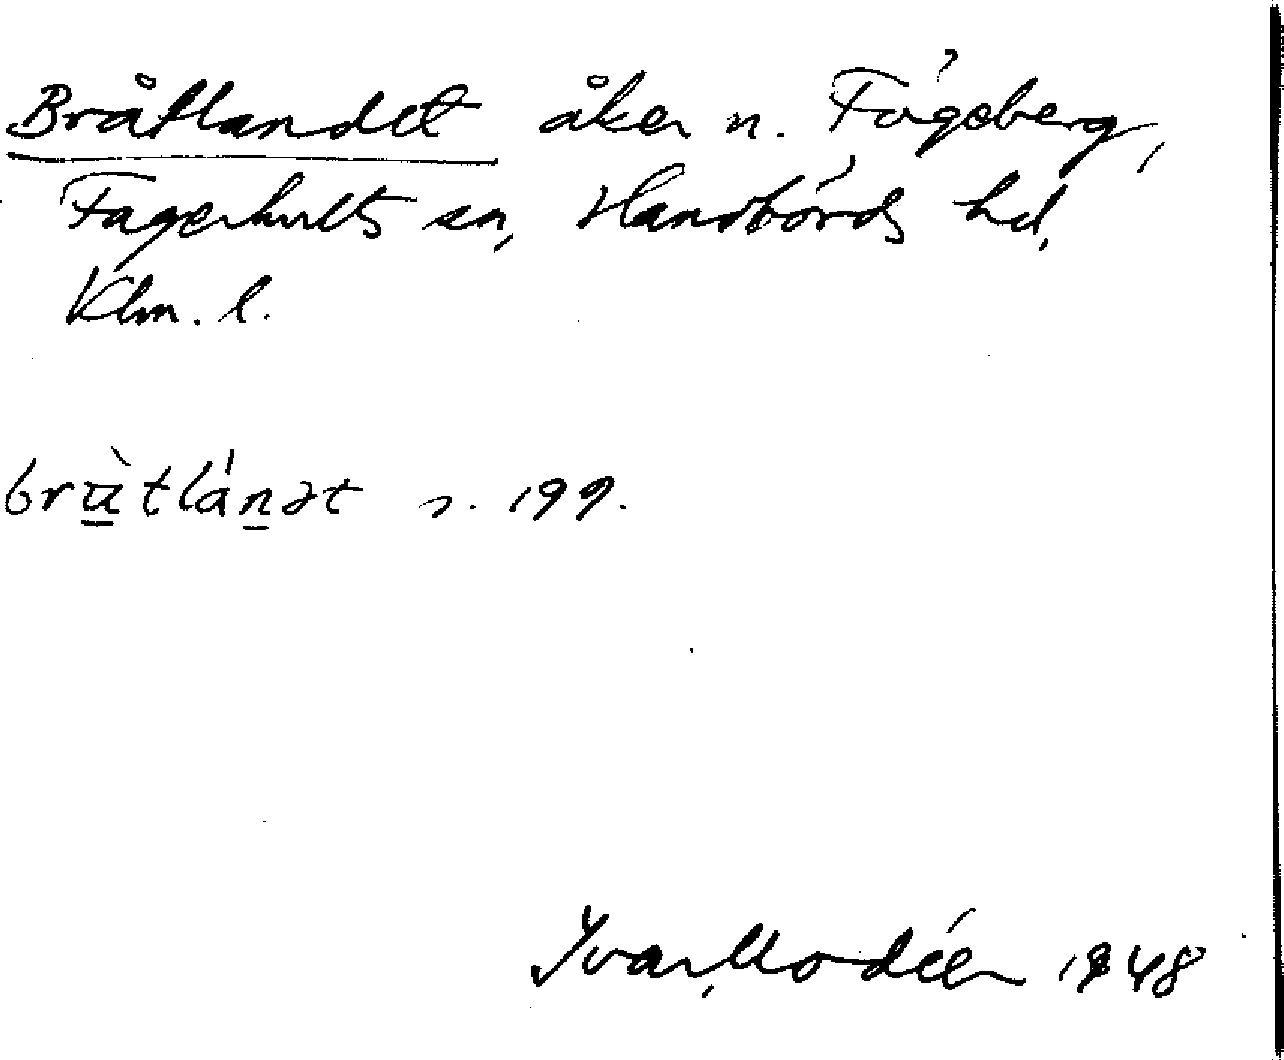 Bråtlandet åker n. Fågeberg,
Fagerhults sn, Handbörds hd,
Klm. l.
brùtlánət s. 199.
Ivar Modéer 1948